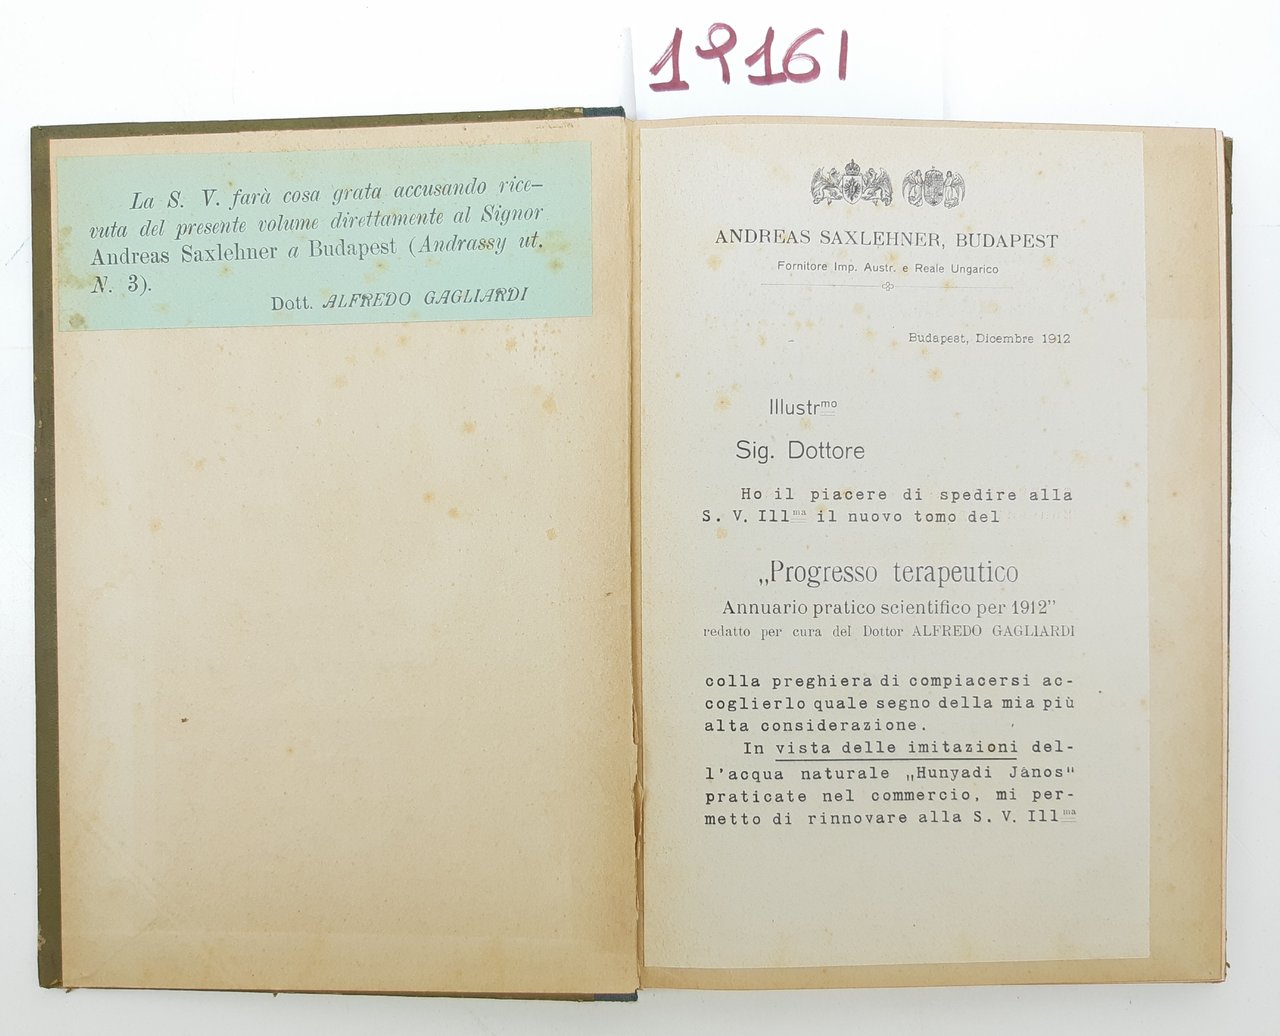 19161
La S. V. farà cosa grata accusando rice-
vuta del presente volume direttamente al Signor
Andreas Saxlehner a Budapest (Andrassy ut.
N. 3).
Dott. ALFREDO GAGLIARDI
ANDREAS SAXLEHNER, BUDAPEST
Fornitore Imp. Austr. e Reale Ungarico
Budapest, Dicembre 1912
Illustrmo
Sig. Dottore
Ho il piacere di spedire alla
S. V. Illma il nuovo tomo del
„Progresso terapeutico
Annuario pratico scientifico per 1912”
redatto per cura del Dottor ALFREDO GAGLIARDI
colla preghiera di compiacersi ac-
coglierlo quale segno della mia più
alta considerazione.
In vista delle imitazioni del-
l'acqua naturale „Hunyadi János“
praticate nel commercio, mi per-
metto di rinnovare alla S. V. Illma